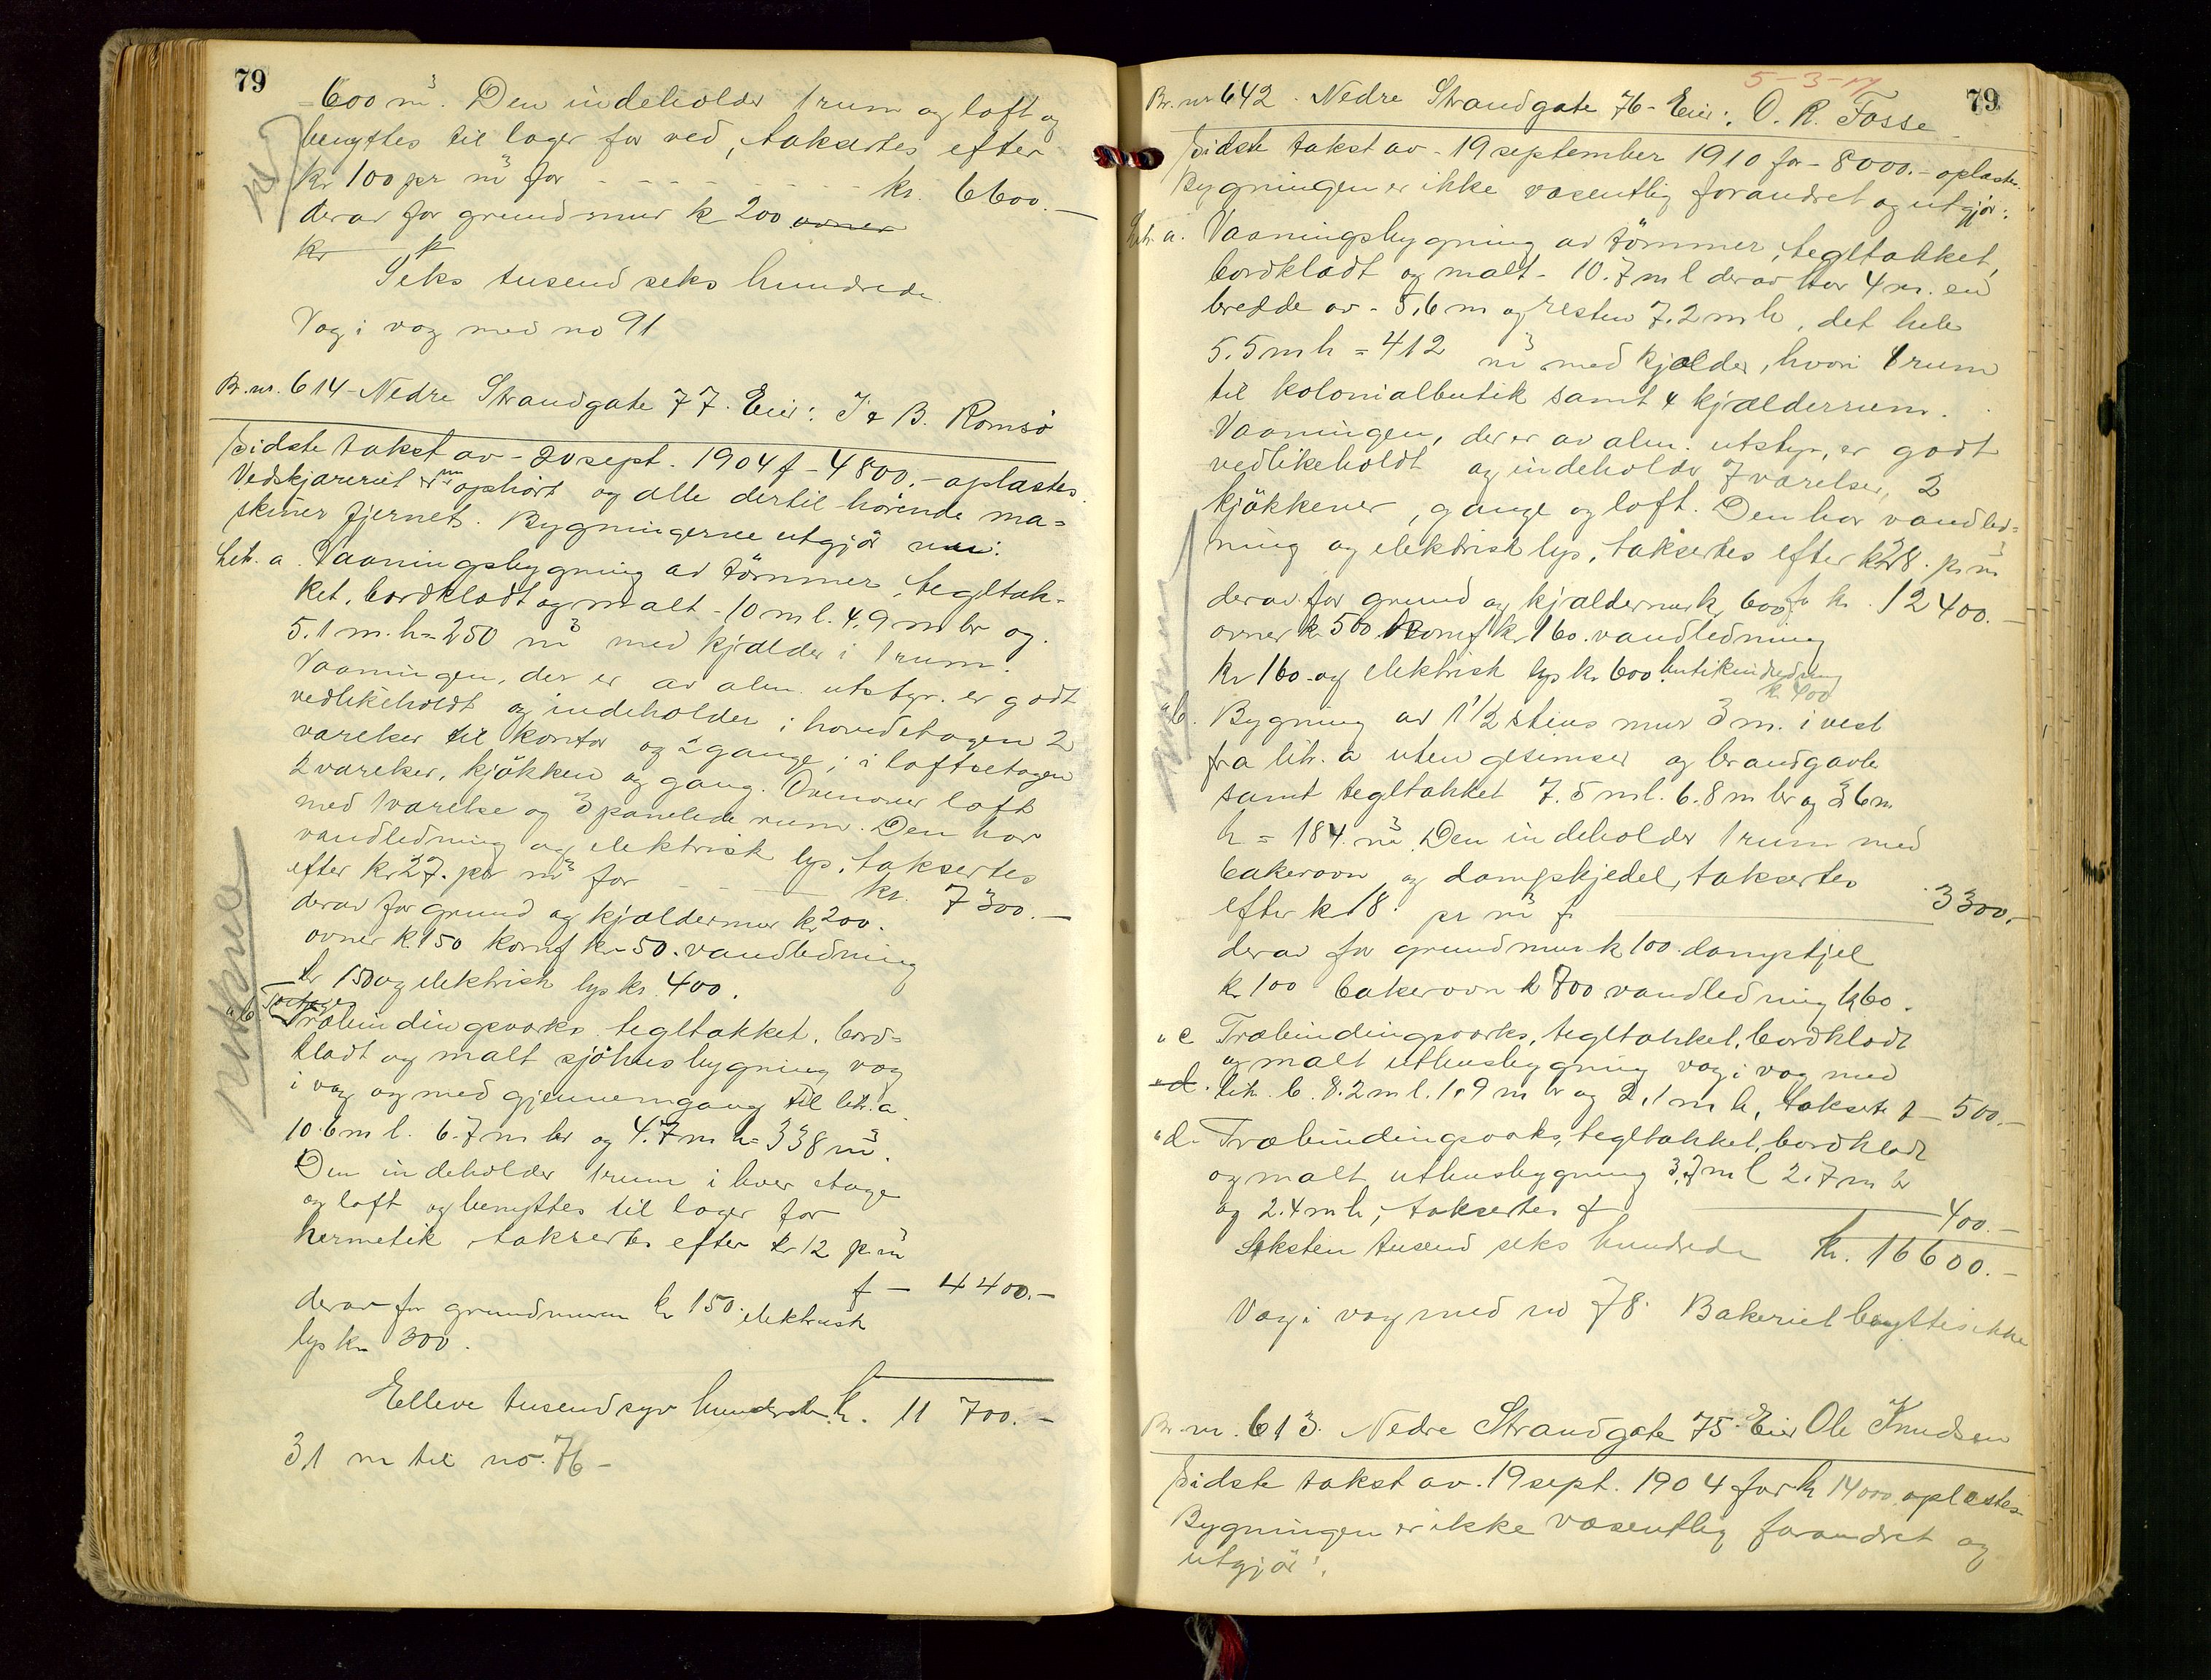 79
600 m³. Den indeholder 1 rum og loft og
benyttes til lager for ved, taksertes efter
kr 100 pr m³ for - - - - - - - kr. 6600.-
derav for grundmur kr 200 ovner
kr k
Seks tusend seks hundrede
Væg i væg med no 91
Br. nr. 614 - Nedre Strandgate 77. Eier: I & B. Romsö
Sidste takst av - 20 sept. 1904 f - 4800.- oplæstes.
Vedskjæreriet er nu ophört og alle dertil hörende ma=
skiner fjernet. Bygningerne utgjör nu:
Litr. a. Vaaningsbygning av tömmer, tegltak-
ket, bordklædt og malt - 10 m l. 4.9 m br og
5.1 m. h = 250 m³ med kjælder i 1 rum.
Vaaningen, der er av alm. utstyr. er godt
vedlikeholdt og indeholder i hovedetagen 2
værelser til kontor og 2 gange; i loftsetagen
2 værelser, kjökken og gang. Ovenover loft
med 1 værelse og 3 panelede rum. Den har
vandledning og elektrisk lys, taksertes
efter kr 27. pr m³ for - - kr. 7300.-
derav for grund og kjældermur kr 200.
ovner kr 150 komf kr 50. vandledning
kr 150 og elektrisk lys kr. 400.
" b. Træbindingsverks tegltækket, bord=
klædt og malt sjöhusbygning væg
i væg og med gjennemgang til litr. a.
10.6 m l. 6.7 m br og 4.7 m h = 338 m³.
Den indeholder 1 rum i hver etage
og loft og benyttes til lager for
hermetik taksertes efter kr 12 pr m³
f - 4400.-
derav for grundmuren kr 150. elektrisk
lys kr 300.
Elleve tusend syv hundrede kr. 11 700.-
3,1 m til no. 76 -
5-3-17
79
Br. nr 642. Nedre Strandgate 76 - Eier: O. R. Fosse
Sidste takst av - 19 september 1910 for - 8000.- oplæstes.
Bygningen er ikke væsentlig forandret og utgjör:
Litr. a. Vaaningsbygning av tömmer, tegltækket,
bordklædt og malt - 10.7 m l derav har 4 m. en
bredde av - 5,6 m og resten 7.2 m h, det hele
5.5 m h = 412 m³ med kjælder, hvori 1 rum
til kolonialbutik samt 4 kjælderrum.
Vaaningen, der er av alm. utstyr, er godt
vedlikeholdt og indeholder 7 værelser, 2
kjökkener, gange og loft. Den har vandled=
ning og elektrisk lys, taksertes efter kr 28. pr m³
derav for grund og kjældermur kr 600 for kr. 12400.-
ovner kr 500 komf kr 160. vandledning
kr 160. og elektrisk lys kr 600. butikindredning
kr 400
" b. Bygning av 1½ stens mur 3 m. i vest
fra litr. a uten gesimser og brandgavle
samt tegltækket 7.5 m l. 6.8 m br og 3.6 m
h = 184. m³. Den indeholder 1 rum med
bakerovn og dampkjedel, taksertes
efter kr 18. pr m³ f. 3300.-
derav for grundmur kr 100. dampkjel
kr 100 bakerovn kr 700 vandledning kr 60.
" c Træbindingsverks, tegltækket, bordklædt
og malt uthusbygning væg i væg med
" d. litr. b. 8.2 m l. 1.9 m br og 2,1 m h, taksert f - 500.-
" d. Træbindingsverks, tegltækket, bordklædt
og malt uthusbygning 3,7 m l 2.7 m br
og 2.4 m h, taksertes f 400.-
Seksten tusend seks hundrede kr. 16600.-
Væg i væg med no 78. Bakeriet benyttes ikke
Br. nr. 613. Nedre Strandgate 75. Eier Ole Knudsen
Sidste takst av. 19 sept. 1904 for kr 14000. oplæstes
Bygningen er ikke væsentlig forandret og
utgjör: